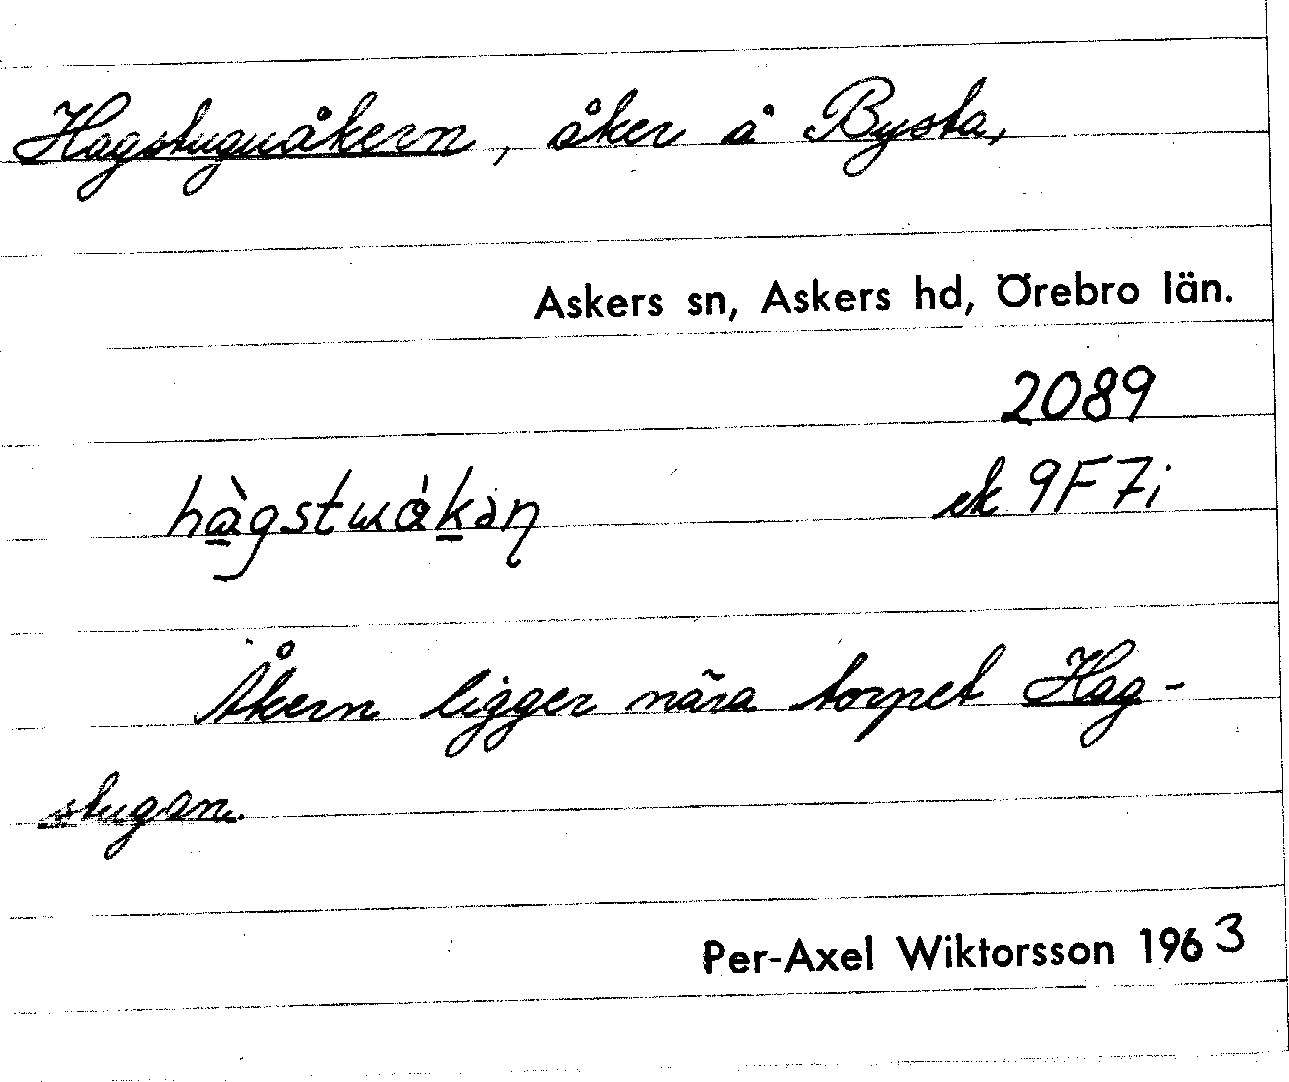 Hagstuguåkern, åker å Bysta,
Askers sn, Askers hd, Örebro län.
2089
hàgstuȧkən ek 9F7i
Åkern ligger nära torpet Hag-
stugan.
Per-Axel Wiktorsson 1963